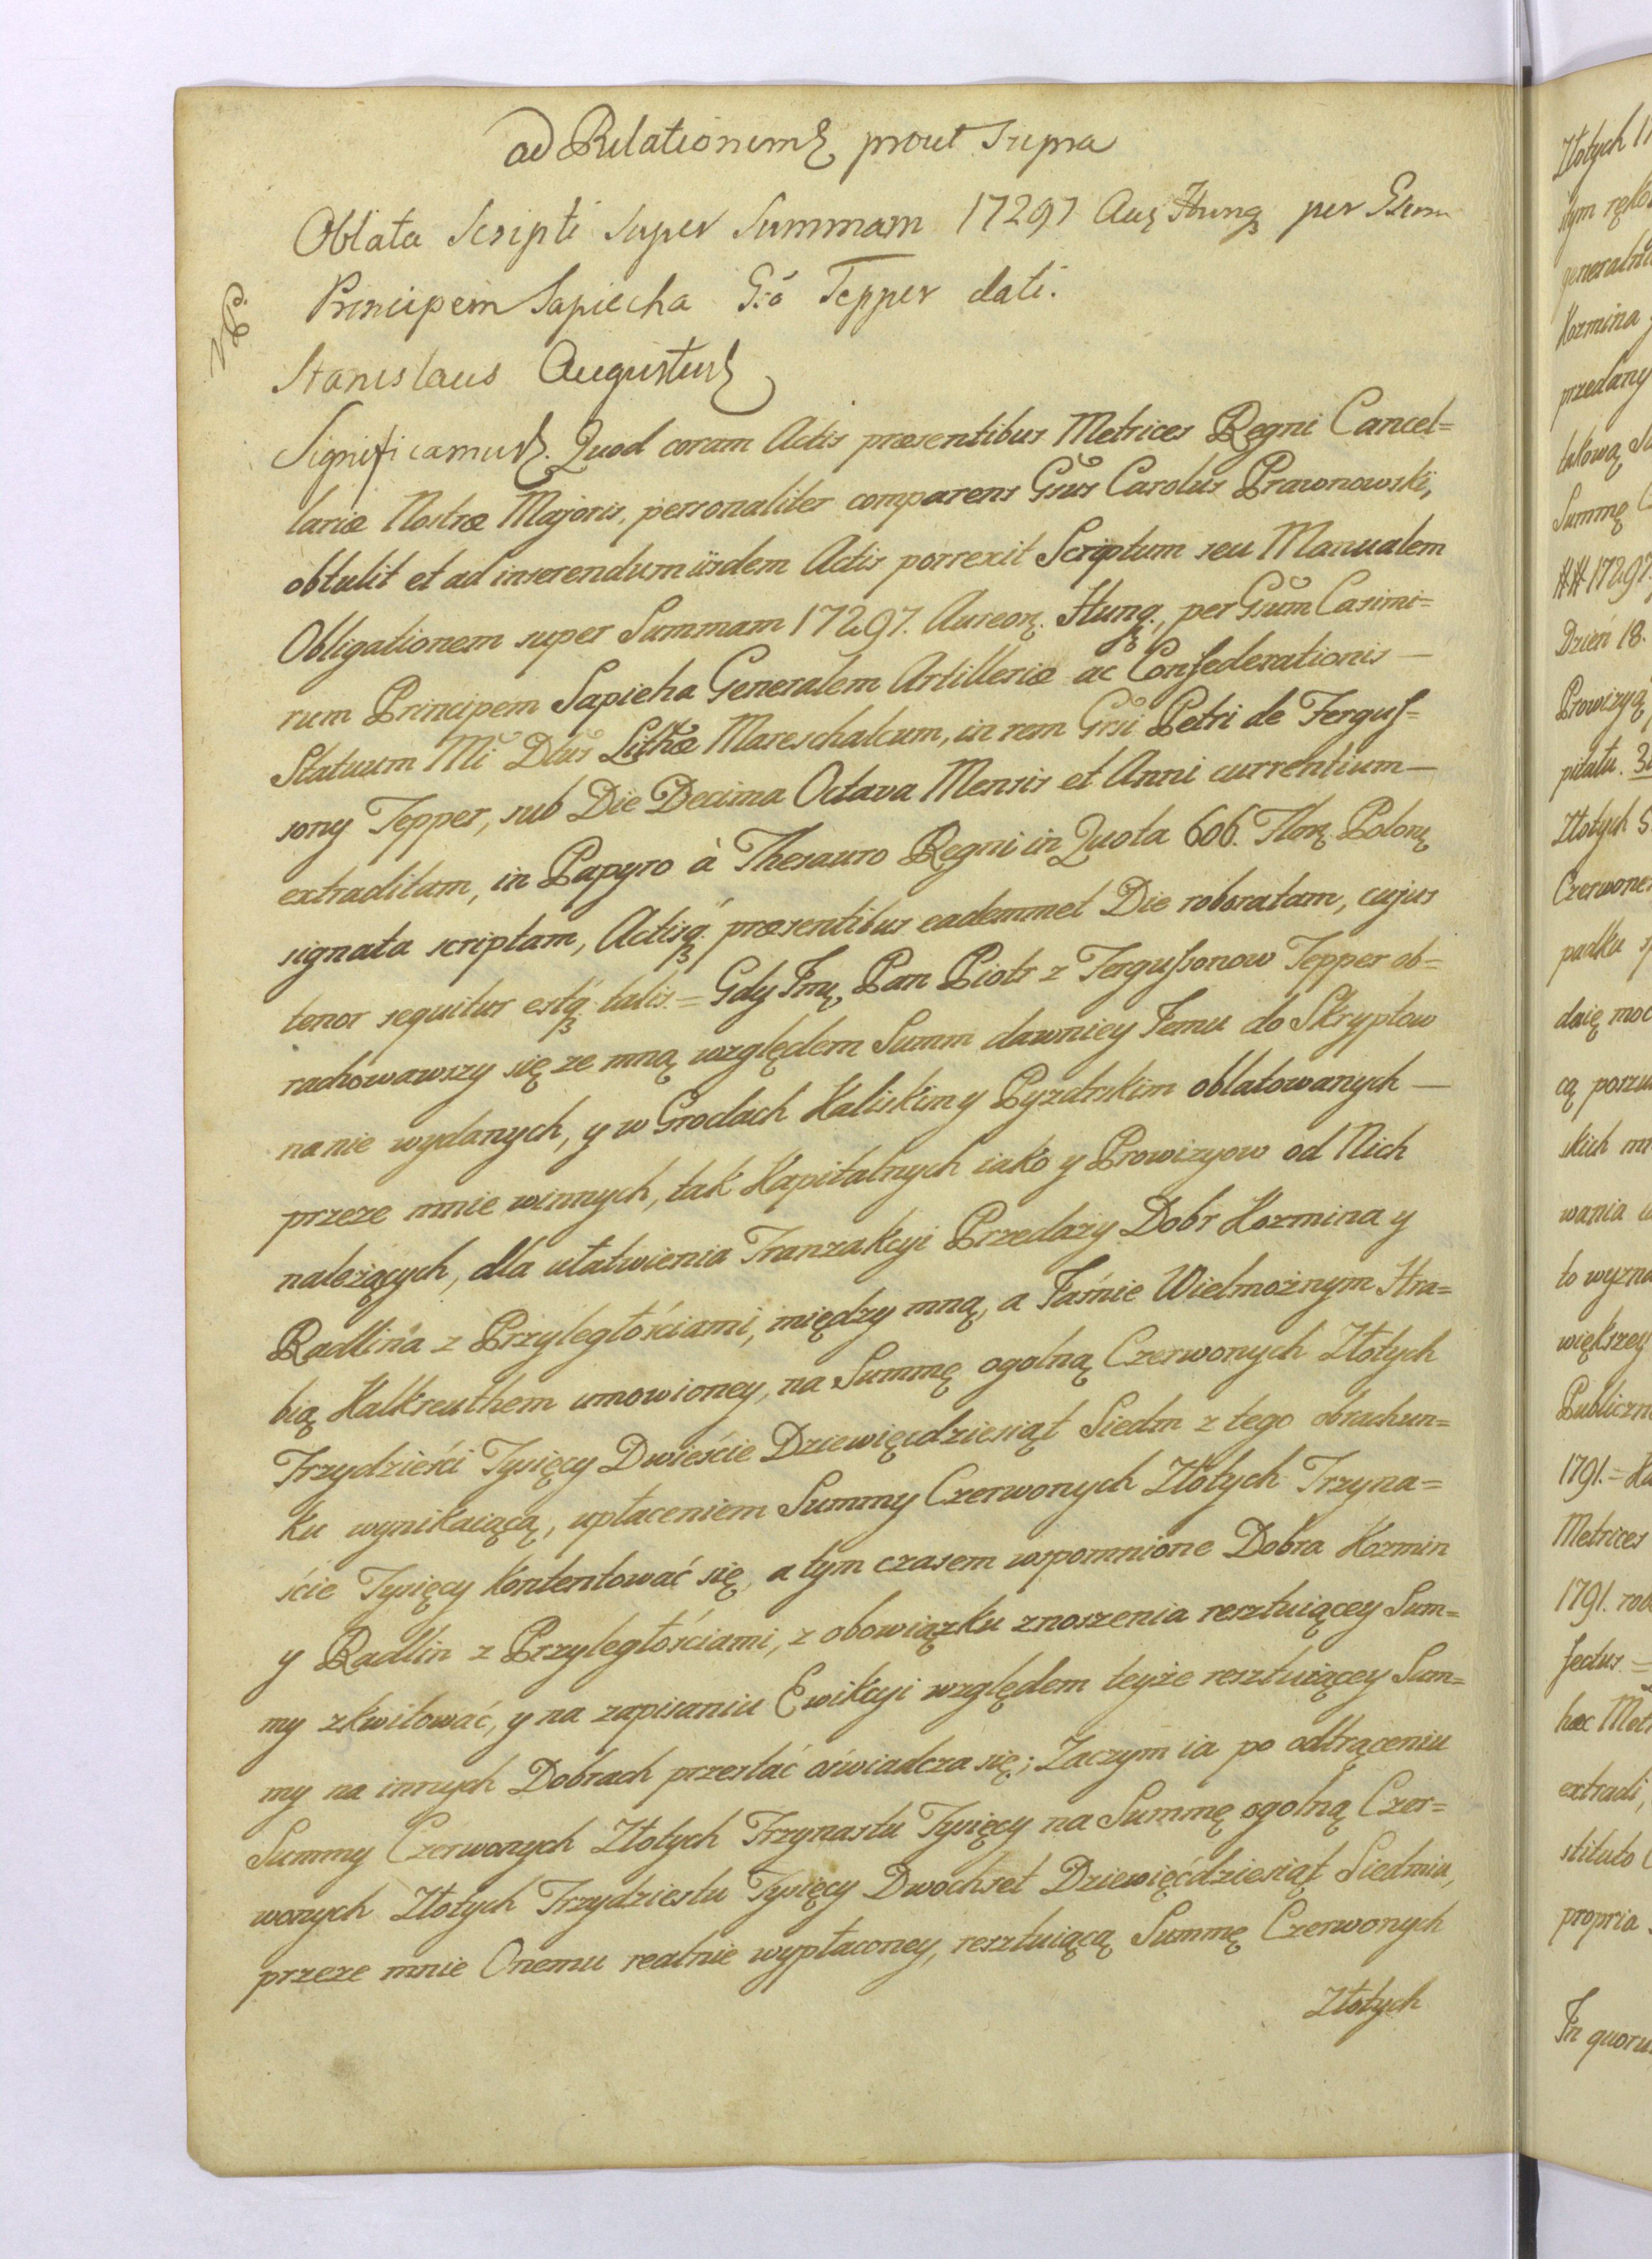 ad Relationem prout Supra
Oblata Scripti super Summam 17297 Aur Hung per Gsum
Principem Sapiecha Gso Tepper dati.
Stanislaus Augustus
Significamus. Quod coram Actis præsentibus Metrices Regni Cancel=
lariæ Nostræ Majoris, personaliter comparens Gsus Carolus Prawnowski,
obtulit et ad inserendum iisdem Actis porrexit Scriptum seu Manualem
Obligationem super Summam 17297. Aureor. Hung., per Gsum Casimi=
rum Principem Sapieha Generalem Artilleriæ ac Confederationis —
Statuum Mi Dtus Lithæ Mareschalcum, in rem Grsi Petri de Fergus=
sony Tepper, sub Die Decima Octava Mensis et Anni currentium —
extraditam, in Papyro à Thesauro Regni in Quota 606. Flor. Polon.
signata scriptam, Actisq. præsentibus eademmet Die roboratam, cujus
tenor sequitur estq. talis. = Gdy Imć, Pan Piotr z Fergussonow Tepper ob=
rachowawszy się ze mną względem Summ dawniey Jemu do Skryptow
na nie wydanych, y w Grodach Kaliskim y Pyzdrskim oblatowanych —
przeze mnie winnych, tak Kapitalnych iako y Prowizyow od Nich
należących, dla ułatwienia Tranzakcyi Przedaży Dobr Kozmina y
Radlina z Przyległościami, między mną, a Jaśnie Wielmożnym Hra=
bią Kalkreuthem umowioney, na Summę ogolną Czerwonych Złotych
Trzydzieści Tysięcy Dwieście Dziewięćdziesiąt Siedm z tego obrachun=
ku wynikaiącą, upłaceniem Summy Czerwonych Złotych Trzyna=
ście Tysięcy kontentować się, a tym czasem wspomnione Dobra Kozmin
y Radlin z Przyległościami, z obowiązku znoszenia resztuiącey Sum=
my zkwitować, y na zapisaniu Ewikcyi względem teyże resztuiącey Sum=
my na innych Dobrach przestać oświadcza się; Zaczym ia po odtrąceniu
Summy Czerwonych Złotych Trzynastu Tysięcy na Summę ogolną Czer=
wonych Złotych Trzydziestu Tysięcy Dwochset Dziewięćdziesiąt Siedmiu,
przeze mnie Onemu realnie wypłaconey, resztuiącą Summę Czerwonych
Złotych